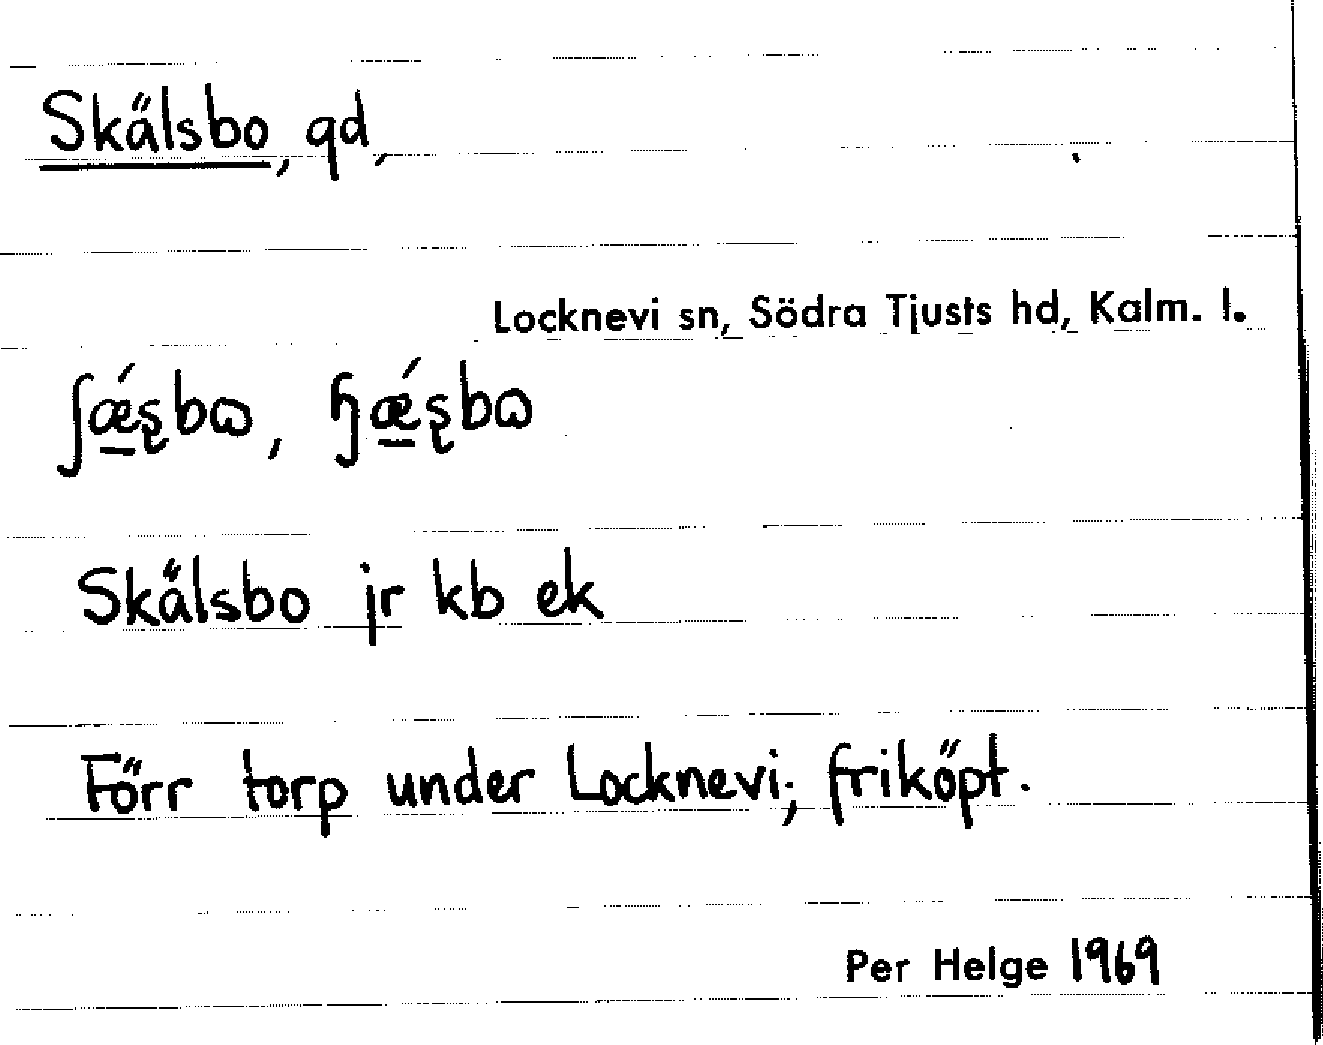 Skälsbo, gd,
Locknevi sn, Södra Tjusts hd, Kalm. l.
Skälsbo jr kb ek
Förr torp under Locknevi; friköpt.
Per Helge 1969